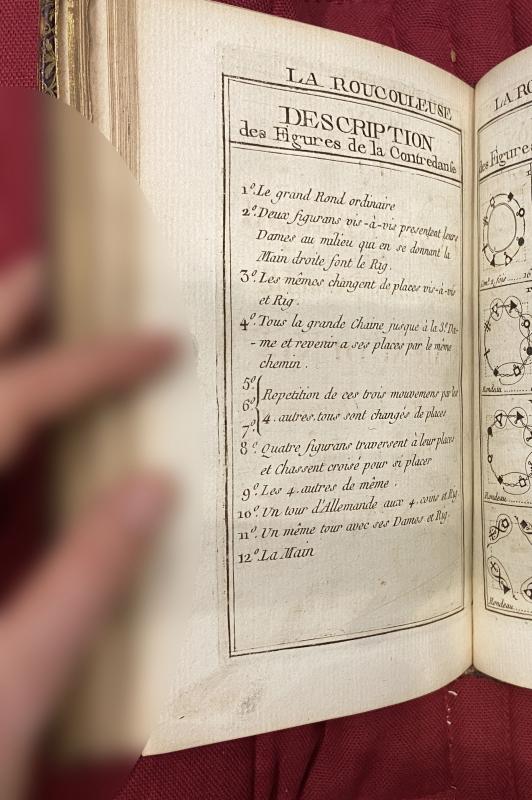 LA ROUCOULEUSE
DESCRIPTION
des Figures de la Contredanse
1º. Le grand Rond ordinaire
2º. Deux figurans vis-à-vis presentent leurs
Dames au milieu qui en se donnant la
Main droite font le Rig.
3º. Les mêmes changent de places vis-à-vis
et Rig.
4º. Tous la grande Chaine jusque à la 3e. Da-
-me et revenir a ses places par le même
chemin.
5º
6º Repetition de ces trois mouvemens par les
7º. 4. autres. tous sont changés de places
8º. Quatre figurans traversent à leur places
et Chassent croisé pour si placer
9º. Les 4. autres de même.
10º. Un tour d'Allemande aux 4. coins et Rig.
11º. Un même tour avec ses Dames et Rig.
12º. La Main
LA RO
des Figures
fois ...... 16
Rondeau
Rondeau
Rondeau